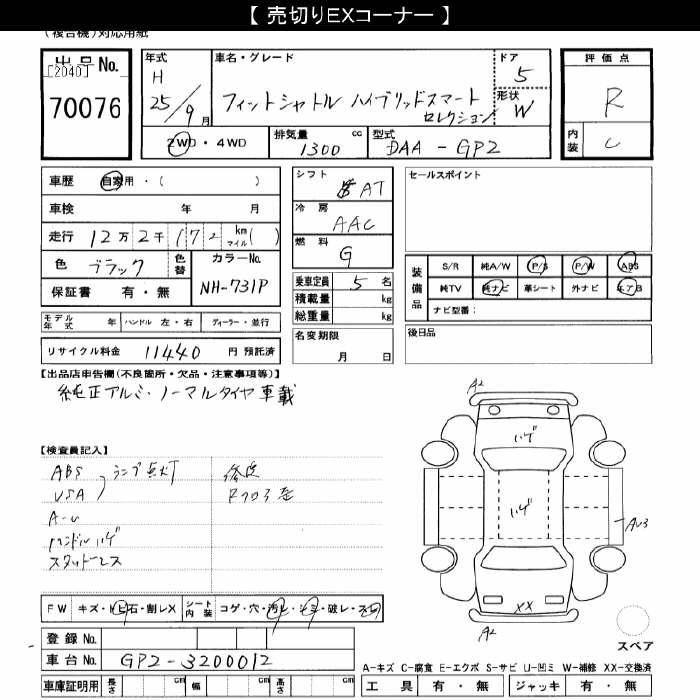 【 売切りEXコーナー 】
(複合機)対応用紙
出品No.
[2040]
70076
年式
H
25/9月
車名・グレード
フィットシャトル ハイブリッドスマート
セレクション
ドア
5
形状
W
評価点
R
内装
C
2WD・4WD
排気量 cc
1300
型式
DAA-GP2
車歴 自家用・( )
車検 年 月
走行 12万2千172 kmマイル( )
色 ブラック 色替
カラーNo.
NH-731P
保証書 有・無
シフト
AT
冷房
AAC
燃料
G
乗車定員 5名
積載量 kg
総重量 kg
セールスポイント
装備品
S/R 純A/W P/S P/W ABS
純TV 純ナビ 革シート 外ナビ エアB
ナビ型番:
モデル年式 年 ハンドル 左・右 ディーラー・並行
リサイクル料金 11440 円 預託済
名変期限
月 日
後日品
【出品店申告欄(不良箇所・欠品・注意事項等)】
純正アルミ・ノーマルタイヤ車載
【検査員記入】
ABS
VSA
ランプ点灯
A-U
ハンドルハゲ
スタッドレス
A2
ハゲ
ハゲ
AU3
XX
A2
FW キズ・トビ石・割レX
シート内装 コゲ・穴・汚レ・シミ・破レ・スレ
登録No.
車台No. GP2-3200012
車庫証明用 長さ cm 幅 cm 高さ cm
スペア
A-キズ C-腐食 E-エクボ S-サビ U-凹ミ W-補修 XX-交換済
工具 有・無 ジャッキ 有・無